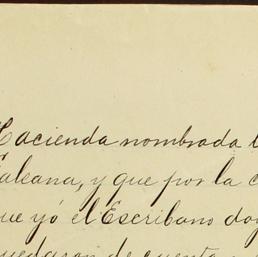 Hacienda nombrada
Galeana, y que por la
que yó el Escribano doy
quedaron de cuenta